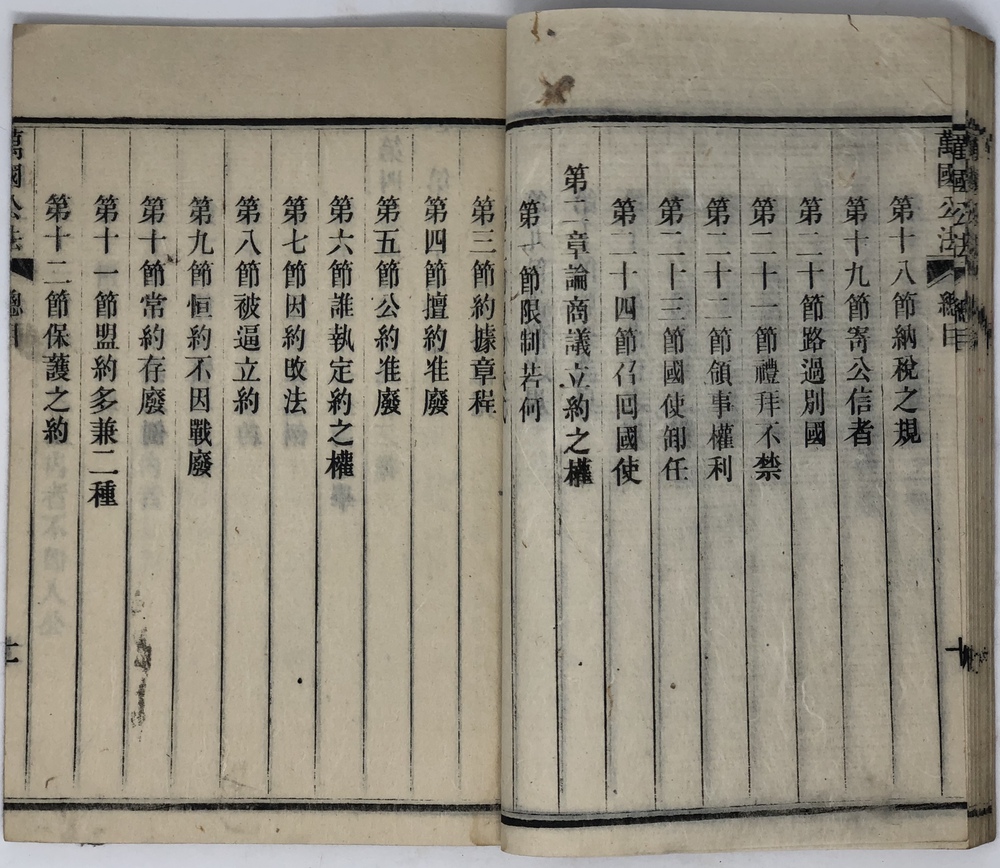 萬國公法
總目
第十八節納稅之規
第十九節寄公信者
第二十節路過別國
第二十一節禮拜不禁
第二十二節領事權利
第二十三節國使卸任
第二十四節召回國使
第二章論商議立約之權
第一節限制若何
第三節約據章程
第四節擅約准廢
第五節公約准廢
第六節誰執定約之權
第七節因約改法
第八節被逼立約
第九節恒約不因戰廢
第十節常約存廢
第十一節盟約多兼二種
第十二節保護之約
萬國公法
總目